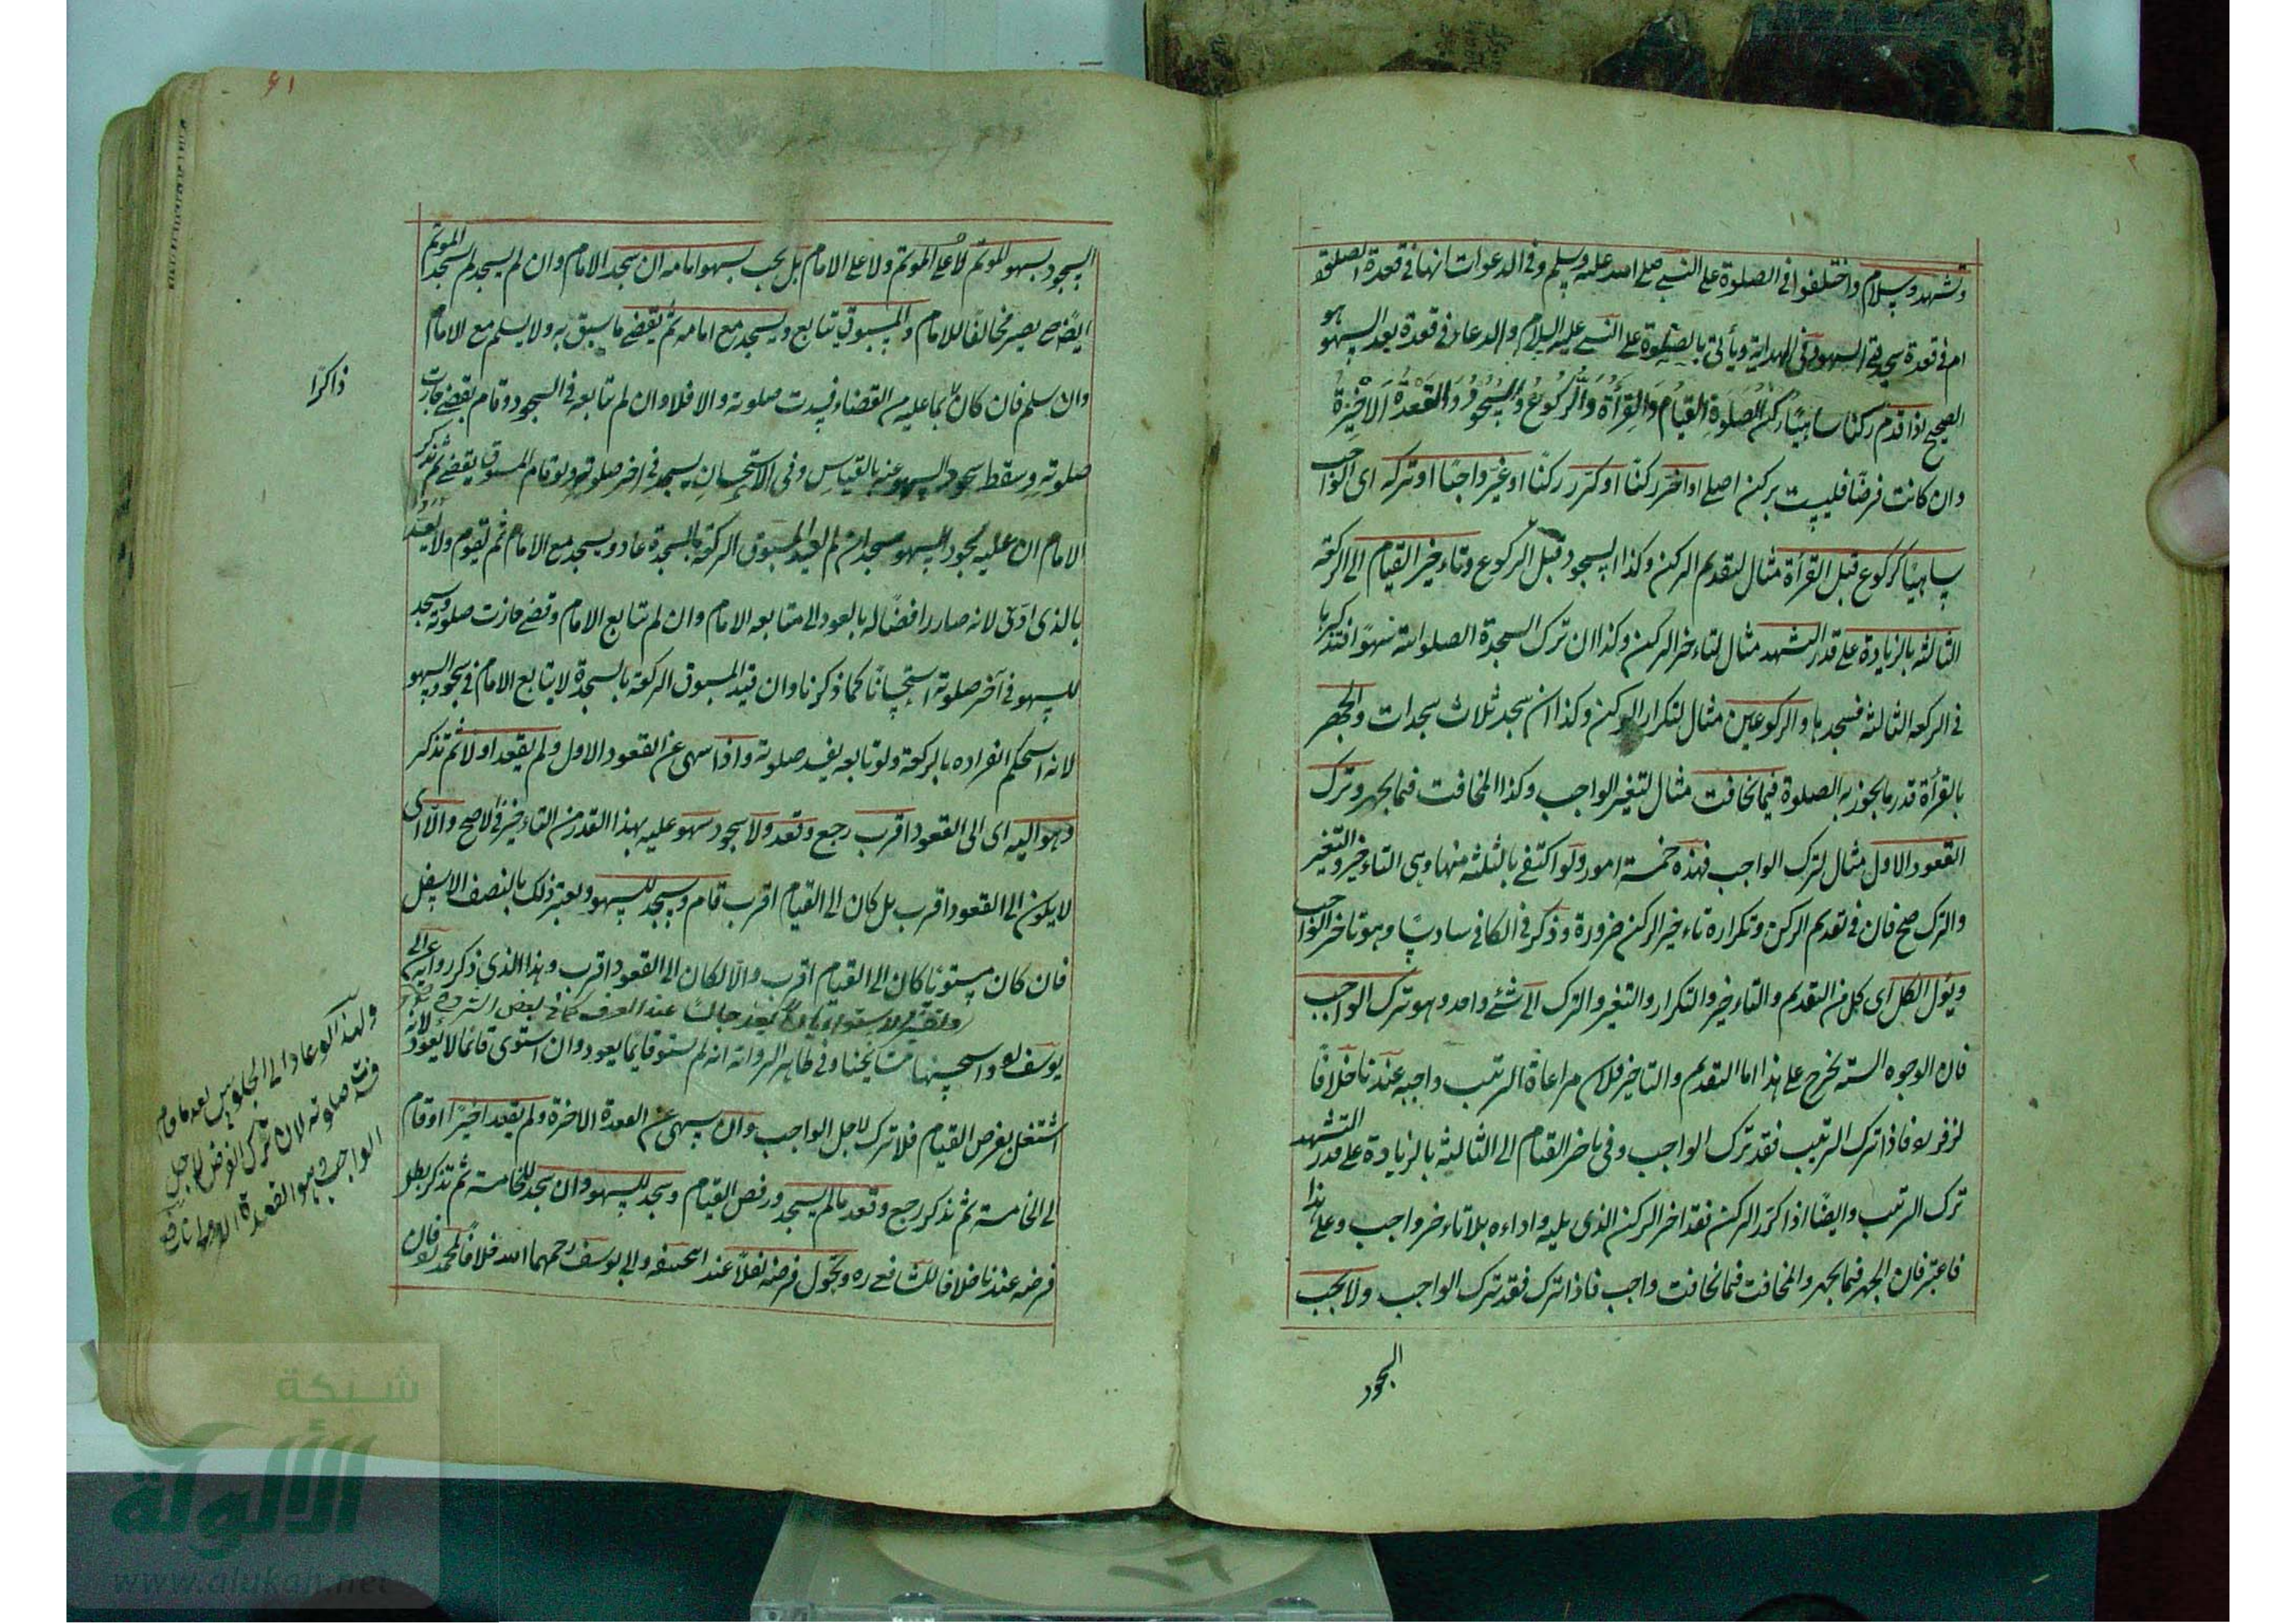 وتشهد وسلام واختلفوا في الصلوة على النبي صلى الله عليه وسلم وفي الدعوات انها في قعدة الصلوة
ام في قعدة سجدتي السهو وفي الهداية ويأتي بالصلوة على النبي عليه السلام والدعاء في قعدة بعد السهو هو
الصحيح اذا قدم ركنا ساهيا ركن الصلوة القيام والقرأة والركوع والسجود والقعدة الاخيرة
وان كانت فرضًا فليست بركن اصلي او اخر ركنًا او كرر ركنًا او غير واجبًا او تركه اى الواجب
ساهيًا كركوع قبل القرأة مثال لتقديم الركن وكذا السجود قبل الركوع وتاءخير القيام الى الركعة
الثالثة بالزيادة على قدر التشهد مثال لتاءخير الركن وكذا ان ترك السجدة الصلواتية سهوًا فتذكرها
في الركعة الثالثة فسجدها والركوعين مثال لتكرار الركن وكذا ان سجد ثلاث سجدات والجهر
بالقرأة قدر ما يجوز به الصلوة فيما يخافت مثال لتغير الواجب وكذا المخافت فيما يجهر وترك
القعود الاول مثال لترك الواجب فهذه خمسة امور ولو اكتفى بالثلثة منها وهي التاءخير والتغير
والترك صح فان في تقديم الركن وتكراره تاءخير الركن ضرورة وذكر في الكافي سادسًا وهو تاخير الواجب
ويئول الكل اى كل من التقديم والتاءخير والتكرار والتغير والترك الى شئ واحد وهو ترك الواجب
فان الوجوه الستة يخرج على هذا اما التقديم والتاخير فلان مراعاة الترتيب واجبة عندنا خلافًا
لزفر ره فاذا ترك الترتيب فقد ترك الواجب وفي تاخير القيام الى الثالثة بالزيادة على قدر التشهد
ترك الترتيب وايضًا اذا كرر الركن فقد اخر الركن الذي يليه واداءه بلا تاءخير واجب وعلى هذا
فاعتبر فان الجهر فيما يجهر والمخافت فيما يخافت واجب فاذا ترك فقد ترك الواجب ولا يجب
السجود
السجود بسهو المؤتم لا على المؤتم ولا على الامام بل يجب بسهو امامه ان سجد الامام وان لم يسجد لم يسجد المؤتم
ايضًا حتى يصير مخالفًا للامام والمسبوق يتابع ويسجد مع امامه ثم يقضي ما سبق به ولا يسلم مع الامام
وان سلم فان كان بما عليه من القضاء فسدت صلوته والا فلا وان لم يتابعه في السجود وقام يقضي جازت
ذاكرًا
صلوته وسقط سجود السهو عنه بالقياس وفي الاستحسان يسجد في اخر صلوته ولو قام المسبوق يقضي ثم تذكر
الامام ان عليه سجود السهو فسجد ان لم يقيد المسبوق الركعة بالسجدة عاد ويسجد مع الامام ثم يقوم ولا يعتد
بالذي ادى لانه صار رافضًا له بالعود الى متابعة الامام وان لم يتابع الامام وقضى جازت صلوته وسجد
للسهو في آخر صلوته استحسانًا كما ذكرنا وان قيد المسبوق الركعة بالسجدة لا يتابع الامام في سجود السهو
لانه استحكم انفراده بالركعة ولو تابعه يفسد صلوته واذا سهى عن القعود الاول ولم يقعد اولًا ثم تذكر
وهو اليه اى الى القعود اقرب رجع وقعد ولا سجود سهو عليه بهذا القدر من التاءخير في الاصح والا اى
لا يكون الى القعود اقرب بل كان الى القيام اقرب قام ويسجد للسهو ويعتبر ذلك بالنصف الاسفل
فان كان مستويًا كان الى القيام اقرب والا لكان الى القعود اقرب وهذا الذي ذكر رواية عن ابي
يوسف ره واستحسنها مشايخنا وفي ظاهر الرواية انه لم يستو قائما يعود وان استوى قائما لا يعود لانه
اشتغل بفرض القيام فلا يترك لاجل الواجب وان سهى عن القعدة الاخيرة ولم يقعد اخيرًا او قام
الى الخامسة ثم تذكر رجع وقعد ما لم يسجد ورفض القيام وسجد للسهو وان سجد للخامسة ثم تذكر بطل
فرضه عندنا خلافا للشافعي ره وتحول فرضه نفلًا عند ابي حنيفة وابي يوسف رحمهما الله خلافًا لمحمد ره فان
ولهذا لو عاد الى الجلوس بعد ما قام
فسدت صلوته لان ترك الفرض لاجل
الواجب وهو القعدة
شبكة
الألوكة
www.alukah.net